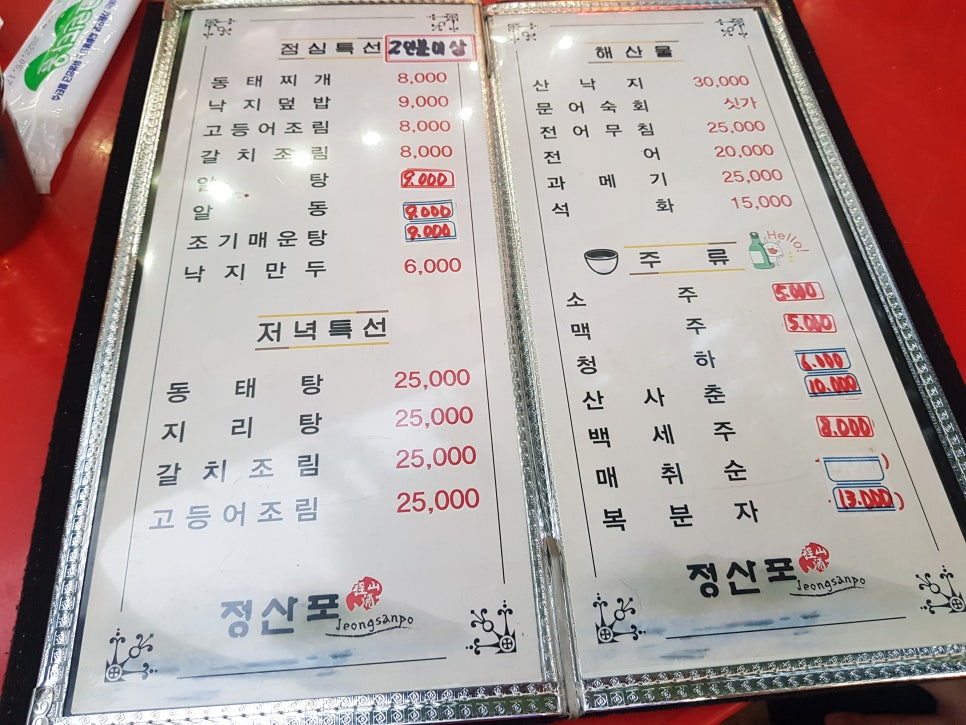 점심특선 2인분이상
동태찌개 8,000
낙지덮밥 9,000
고등어조림 8,000
갈치조림 8,000
알탕 9.000
알동 9.000
조기매운탕 9.000
낙지만두 6,000
저녁특선
동태탕 25,000
지리탕 25,000
갈치조림 25,000
고등어조림 25,000
정산포
Jeongsanpo
해산물
산낙지 30,000
문어숙회 싯가
전어무침 25,000
전어 20,000
과메기 25,000
석화 15,000
주류 Hello!
소주 5.000
맥주 5.000
청하 6.000
산사춘 10.000
백세주 8.000
매취순
복분자 13.000
정산포
Jeongsanpo